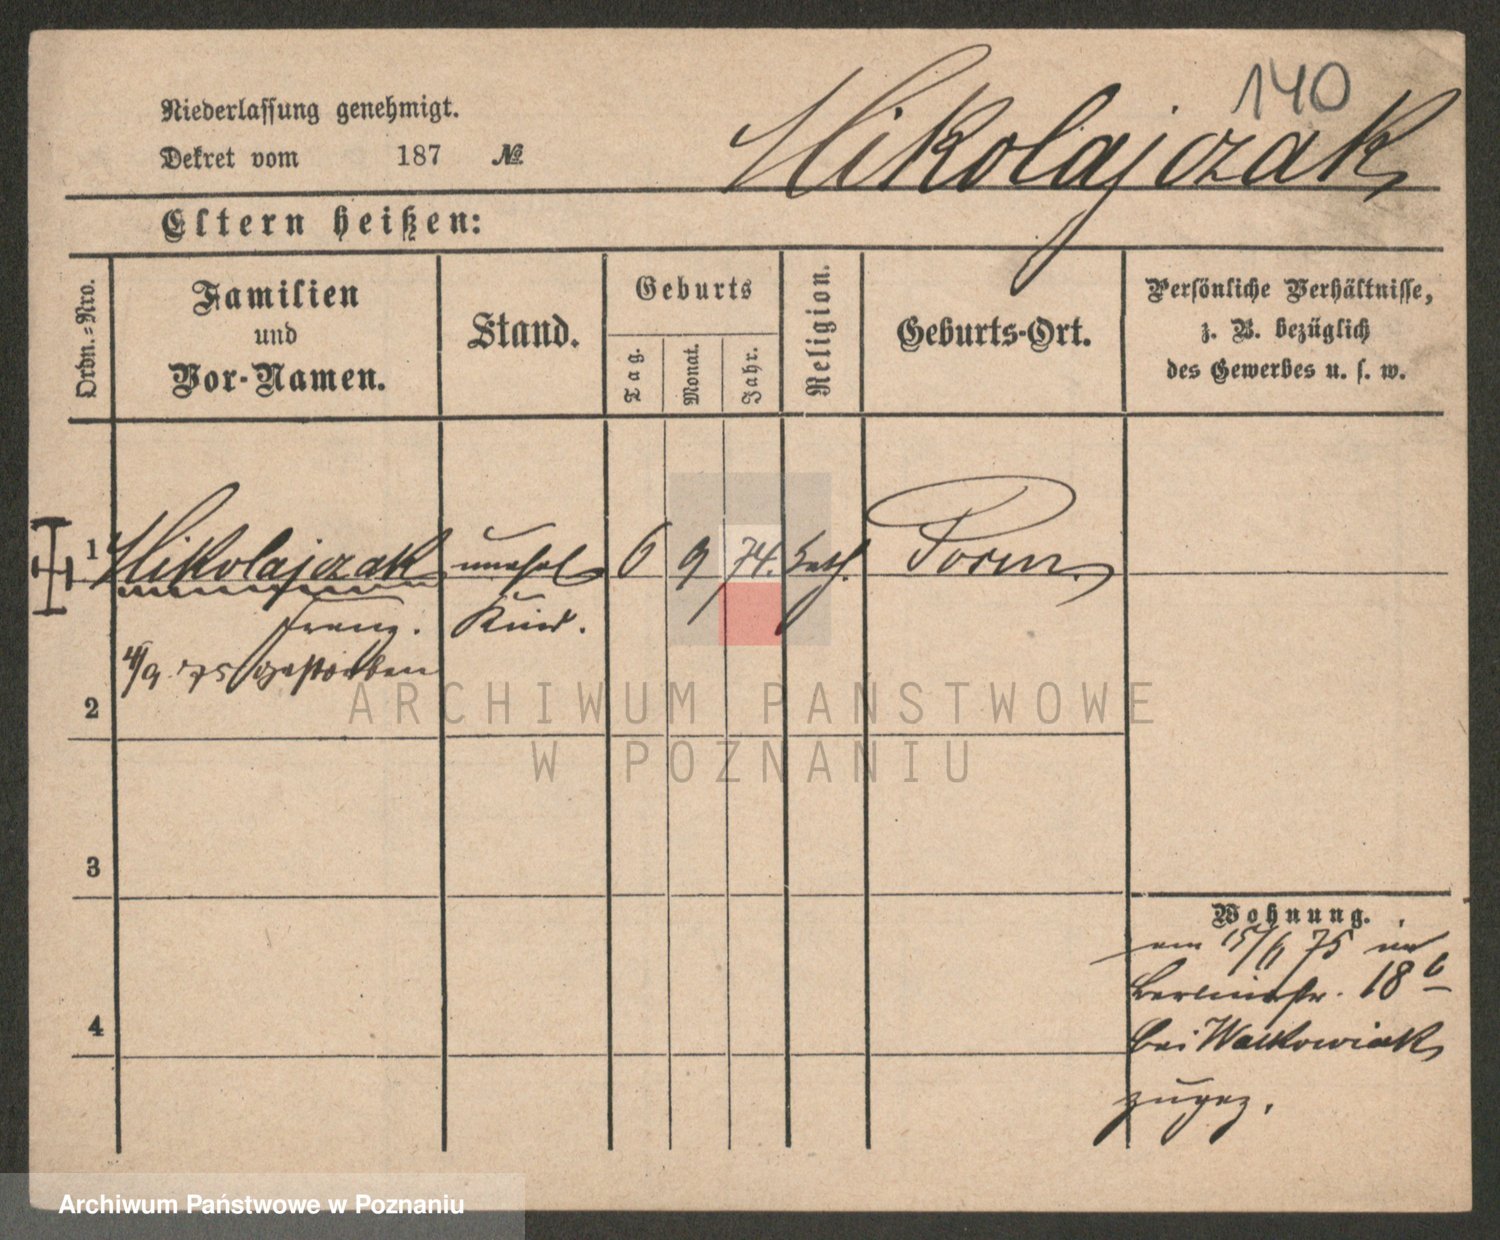 140
Niederlassung genehmigt.
Dekret vom 187 №
Mikolajczak
Eltern heißen:
Ordn.=Nro.
Familien
und
Vor-Namen.
Stand.
Geburts
Tag.
Monat.
Jahr.
Religion.
Geburts-Ort.
Persönliche Verhältnisse,
z. B. bezüglich
des Gewerbes u. s. w.
1 Mikolajczak unehel 6 9 74. kath. Posen
Franz. Kind.
4/9 75 gestorben
2
3
4
Wohnung.
am 15/6 75 in
Berlinerstr. 18 b
bei Walkowiak
zugez.
ARCHIWUM PAŃSTWOWE
W POZNANIU
Archiwum Państwowe w Poznaniu